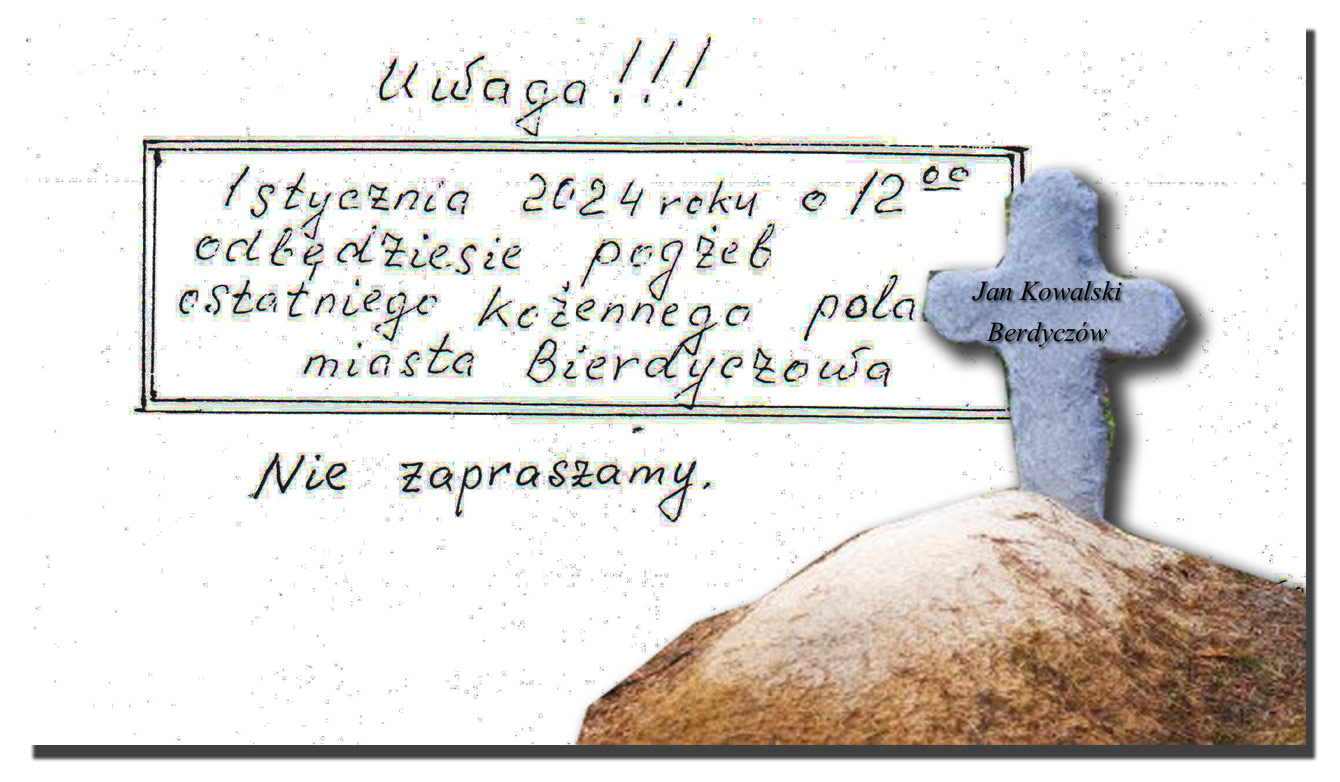 Uwaga!!!
1 stycznia 2024 roku o 12⁰⁰
odbędziesie pogżeb
ostatniego kożennego pola
miasta Bierdyczowa
Nie zapraszamy.
Jan Kowalski
Berdyczów